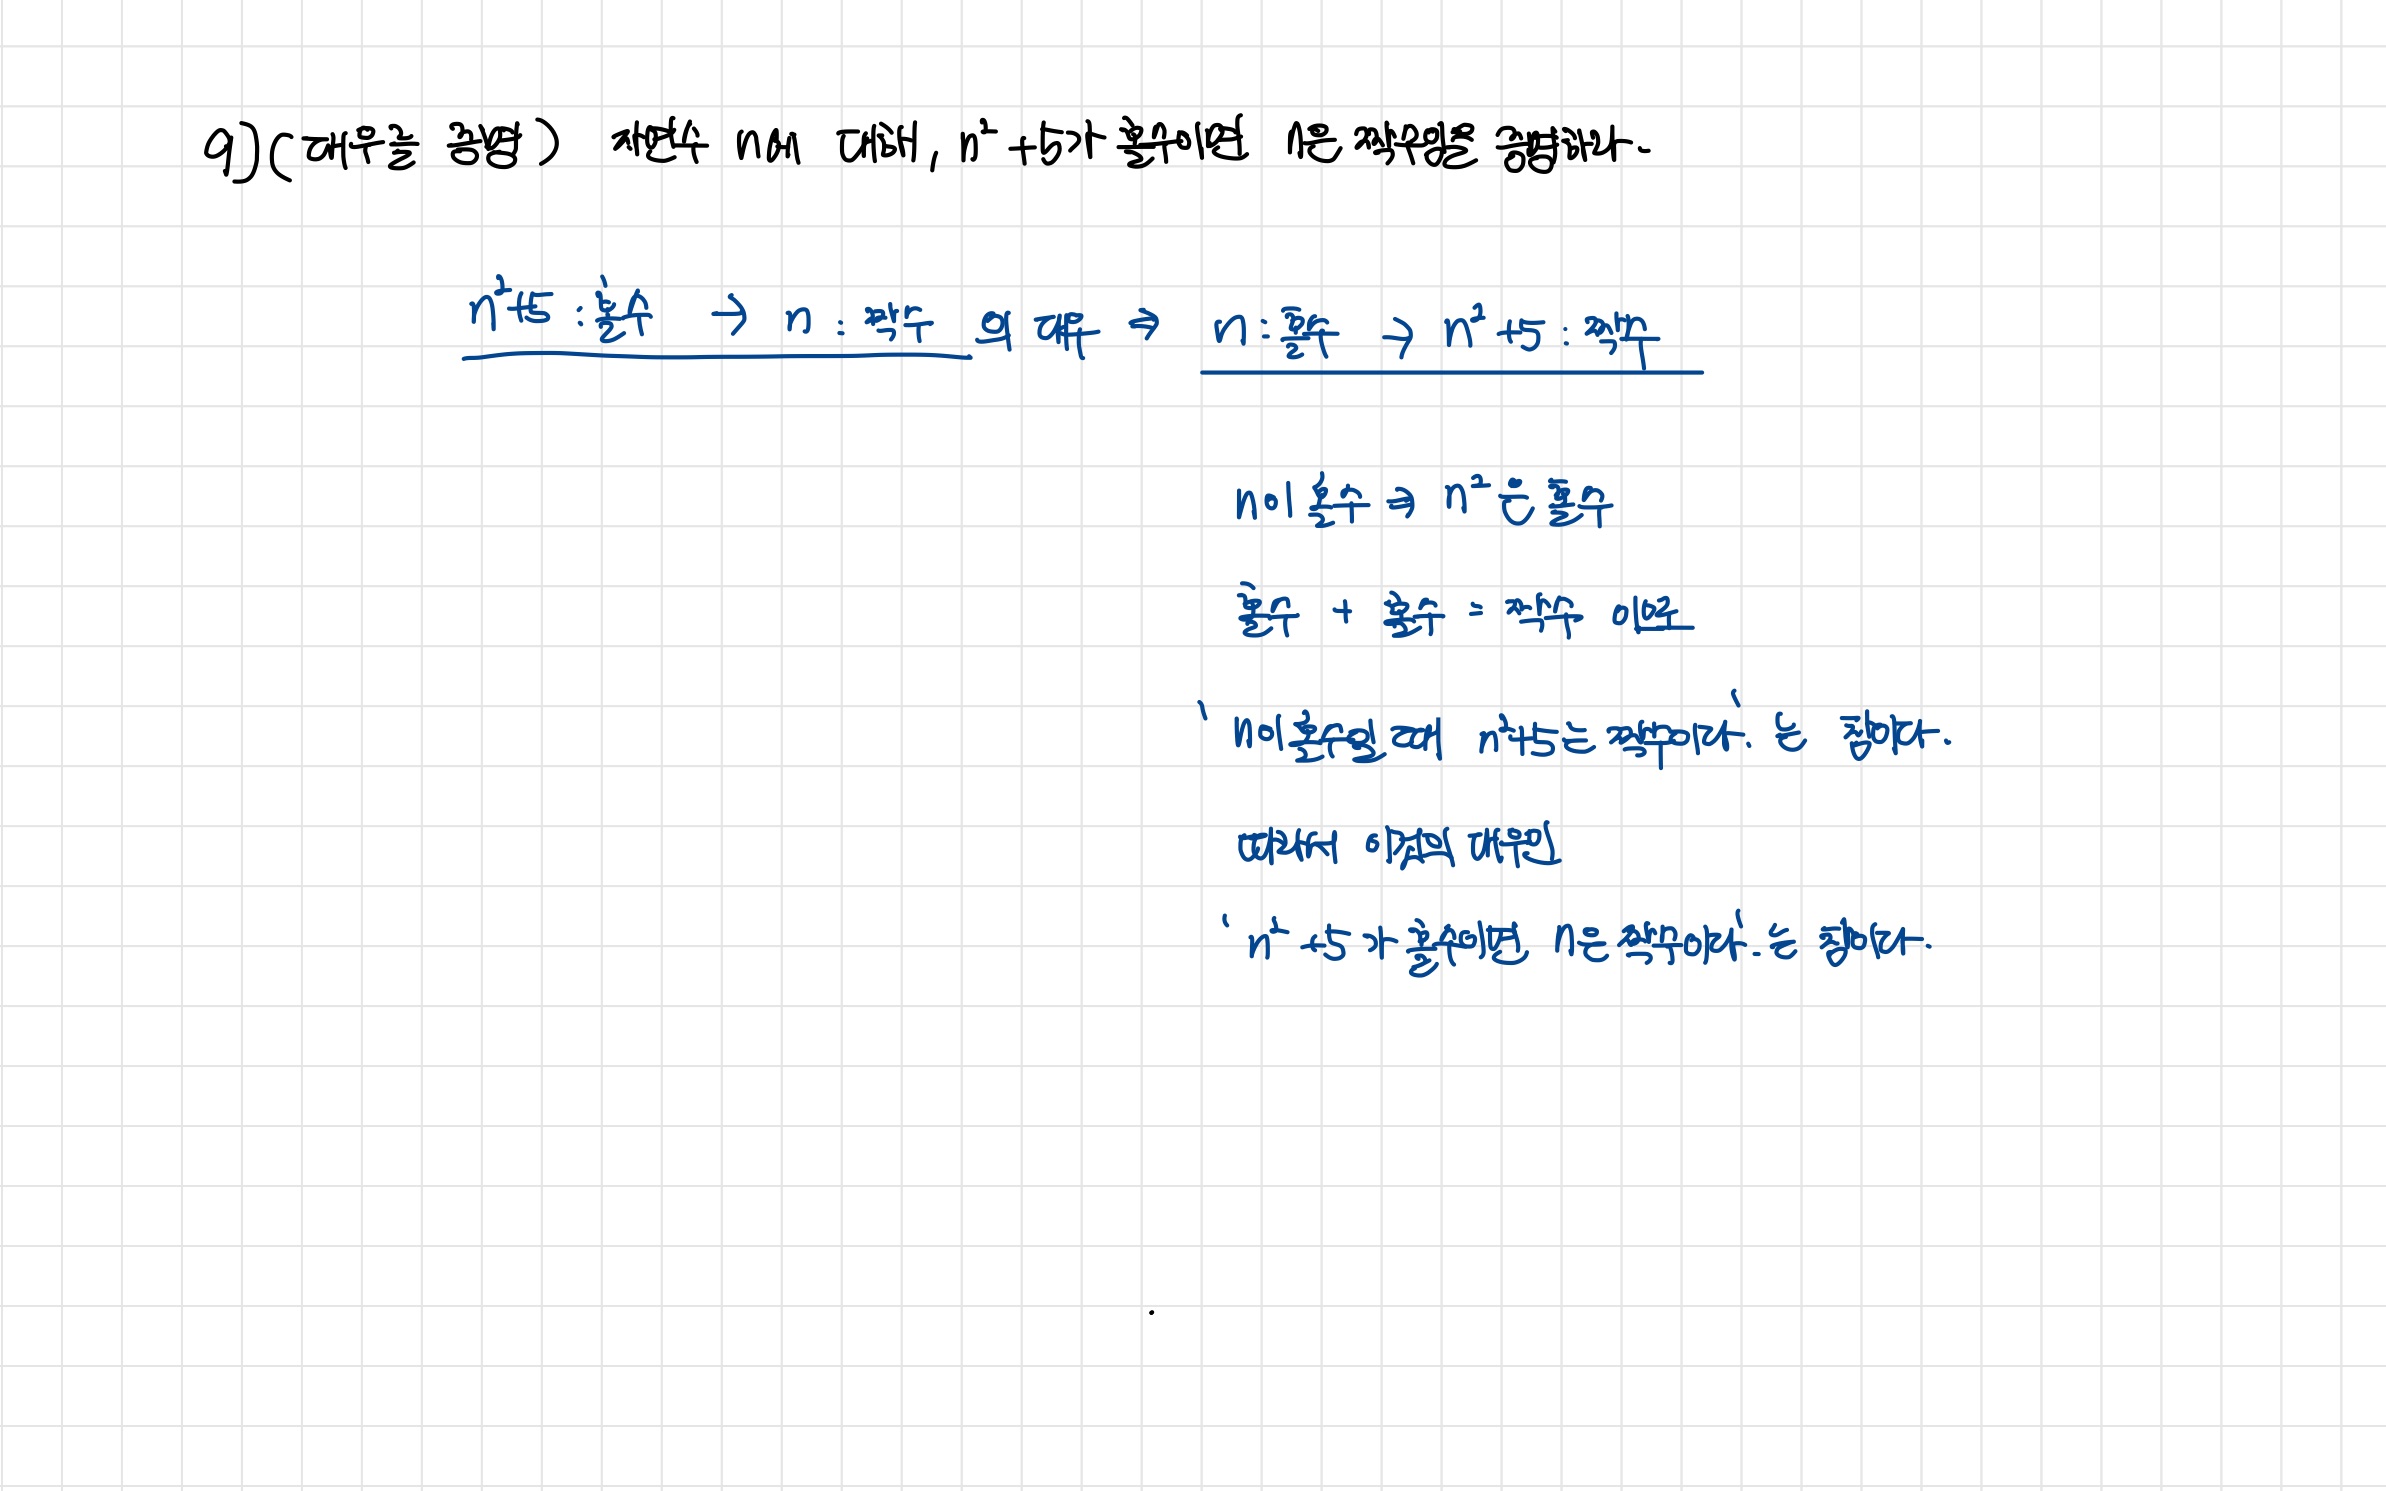 9) (대우를 증명) 자연수 n에 대해, n²+5가 홀수이면 n은 짝수임을 증명하라.
n²+5 : 홀수 → n : 짝수 의 대우 ⇒ n : 홀수 → n²+5 : 짝수
n이 홀수 ⇒ n²은 홀수
홀수 + 홀수 = 짝수 이므로
'n이 홀수일 때 n²+5는 짝수이다.'는 참이다.
따라서 이것의 대우인
'n²+5가 홀수이면 n은 짝수이다.'는 참이다.